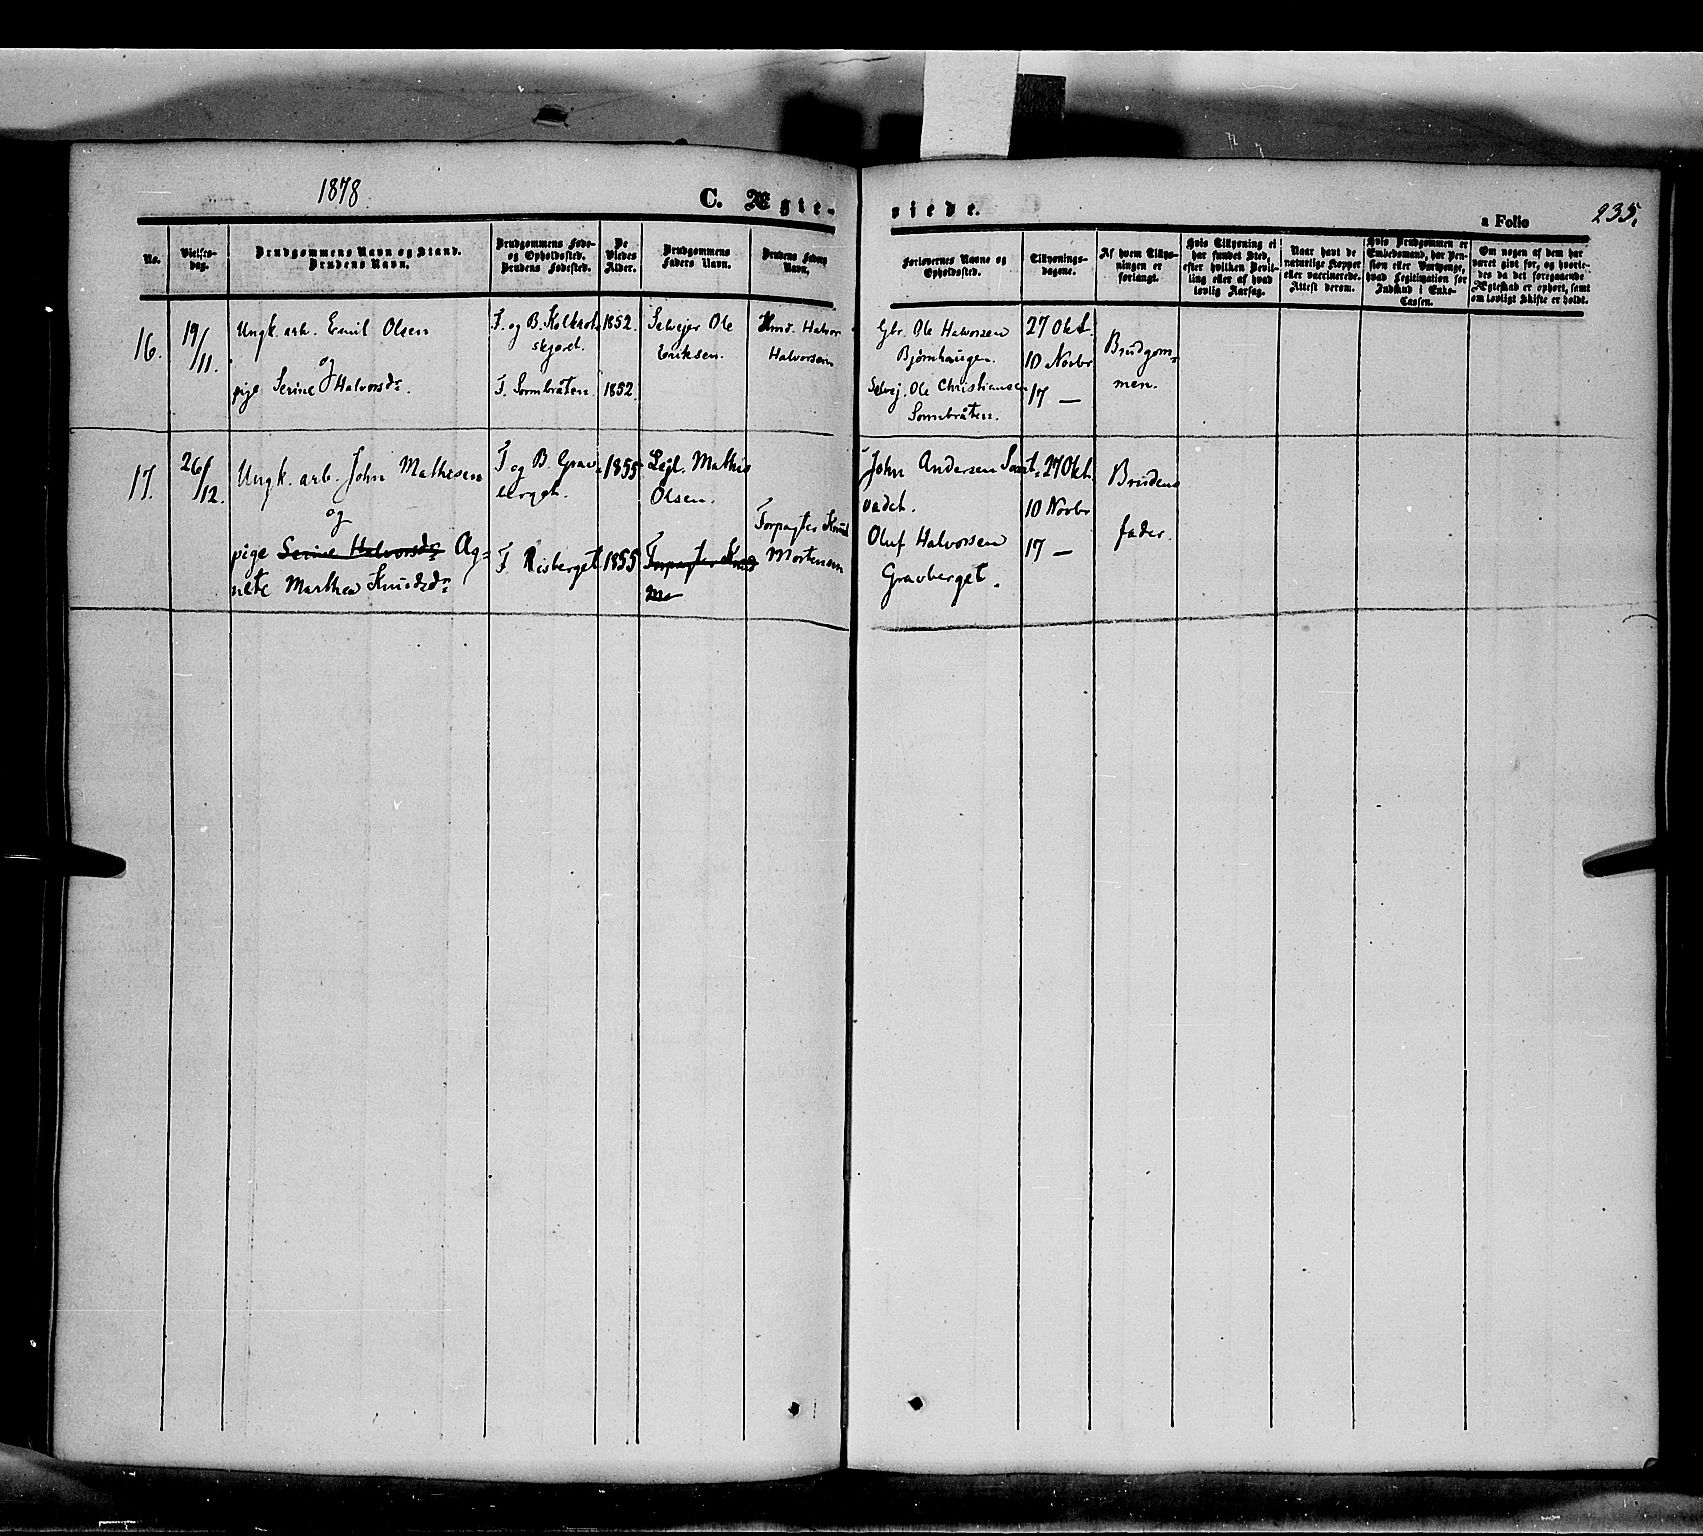 1878
C. Ægte-
viede.
a Folio
235.
No.
Vielses-
dag.
Brudgommens Navn og Stand.
Brudens Navn.
Brudgommens Føde-
og Opholdssted.
Brudens Fødested.
De
Viedes
Alder.
Brudgommens
Faders Navn.
Brudens Faders
Navn.
Forlovernes Navne og
Opholdssted.
Tillysnings-
dagene.
Af hvem Tillys-
ningen er
forlangt.
Hvis Tillysning ei
har fundet Sted,
efter hvilken Bevil-
ling eller af hvad
lovlig Aarsag.
Naar havt de
naturlige Kopper
eller vaccinerede.
Attest derom.
Hvis Brudgommen er
Embedsmand, har Pen-
sion eller Vartpenge,
hvad Legitimation for
Indskud i Enke-
Cassen.
Om nogen af dem har
været givt før, og hvorle-
des da det foregaaende
Ægteskab er ophørt, samt
om lovligt Skifte er holdt.
16.
19/11.
Ungk. arb. Emil Olsen
og
pige Serine Halvorsd:
F. og B.
skjæret.
F. Sormbråten.
1852.
1852.
Selvejer Ole
Eriksen.
Halvor
Halvorsen
Gbr. Ole Halvorsen
Bjørnhaugen.
Selvej. Ole Christiansen
Sormbråten.
27 Okt.
10 Novbr
17 —
Brudgom-
men.
17.
26/12.
Ungk. arb. John Mathisen
og
pige Serine Halvorsd: Ag-
nete Marthea Knudsd:
F og B. Grav-
berget.
F. Risberget.
1855
1855
Lejl. Mathis
Olsen.
Forpagter Knud
M
Forpagter Knud
Mortensen
John Andersen
vadet.
Oluf Halvorsen
Gravberget.
27 Okt.
10 Novbr
17 —
Brudens
fader.